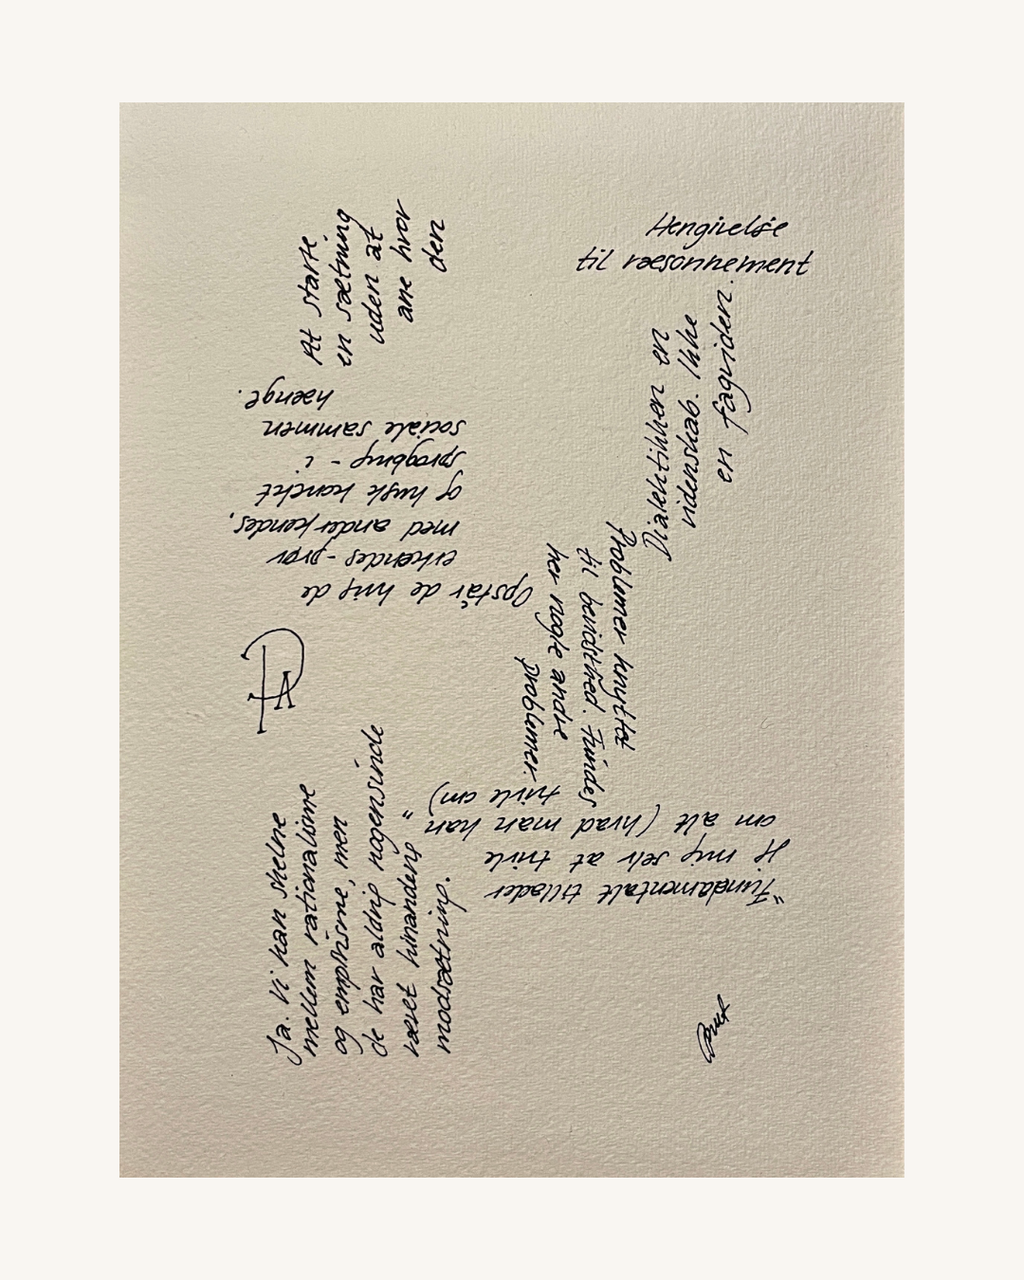 Hengivelse
til ræsonnement
Dialektikken en
videnskab. Ikke
en fagviden.
Problemer knyttet
til bevidsthed. Findes
her nogle andre
problemer.
"Fundamentalt tillader
je mig selv at tvivle
om alt (hvad man kan
tvivle om)"
At starte
en sætning
uden at
ane hvor
den
Opstår de ting de
erkendes - prøv
med anderkendes,
og husk
sprogbrug - i
sociale sammen
hænge.
PA
Ja. Vi kan skelne
mellem rationalisme
og empirisme, men
de har aldrig nogensinde
været hinandens
modsætning.